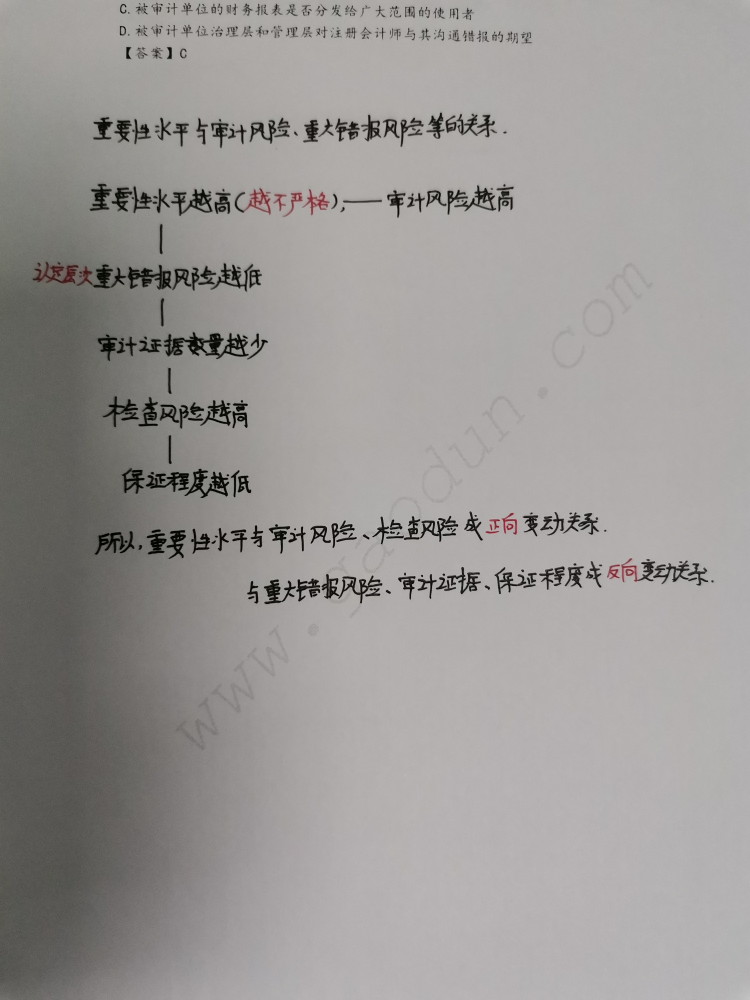 C. 被审计单位的财务报表是否分发给广大范围的使用者
D. 被审计单位治理层和管理层对注册会计师与其沟通错报的期望
【答案】C
重要性水平与审计风险、重大错报风险等的关系.
重要性水平越高(越不严格),——审计风险越高
认定层次重大错报风险越低
审计证据数量越少
检查风险越高
保证程度越低
所以,重要性水平与审计风险、检查风险成正向变动关系.
与重大错报风险、审计证据、保证程度成反向变动关系.
www.gaodun.com